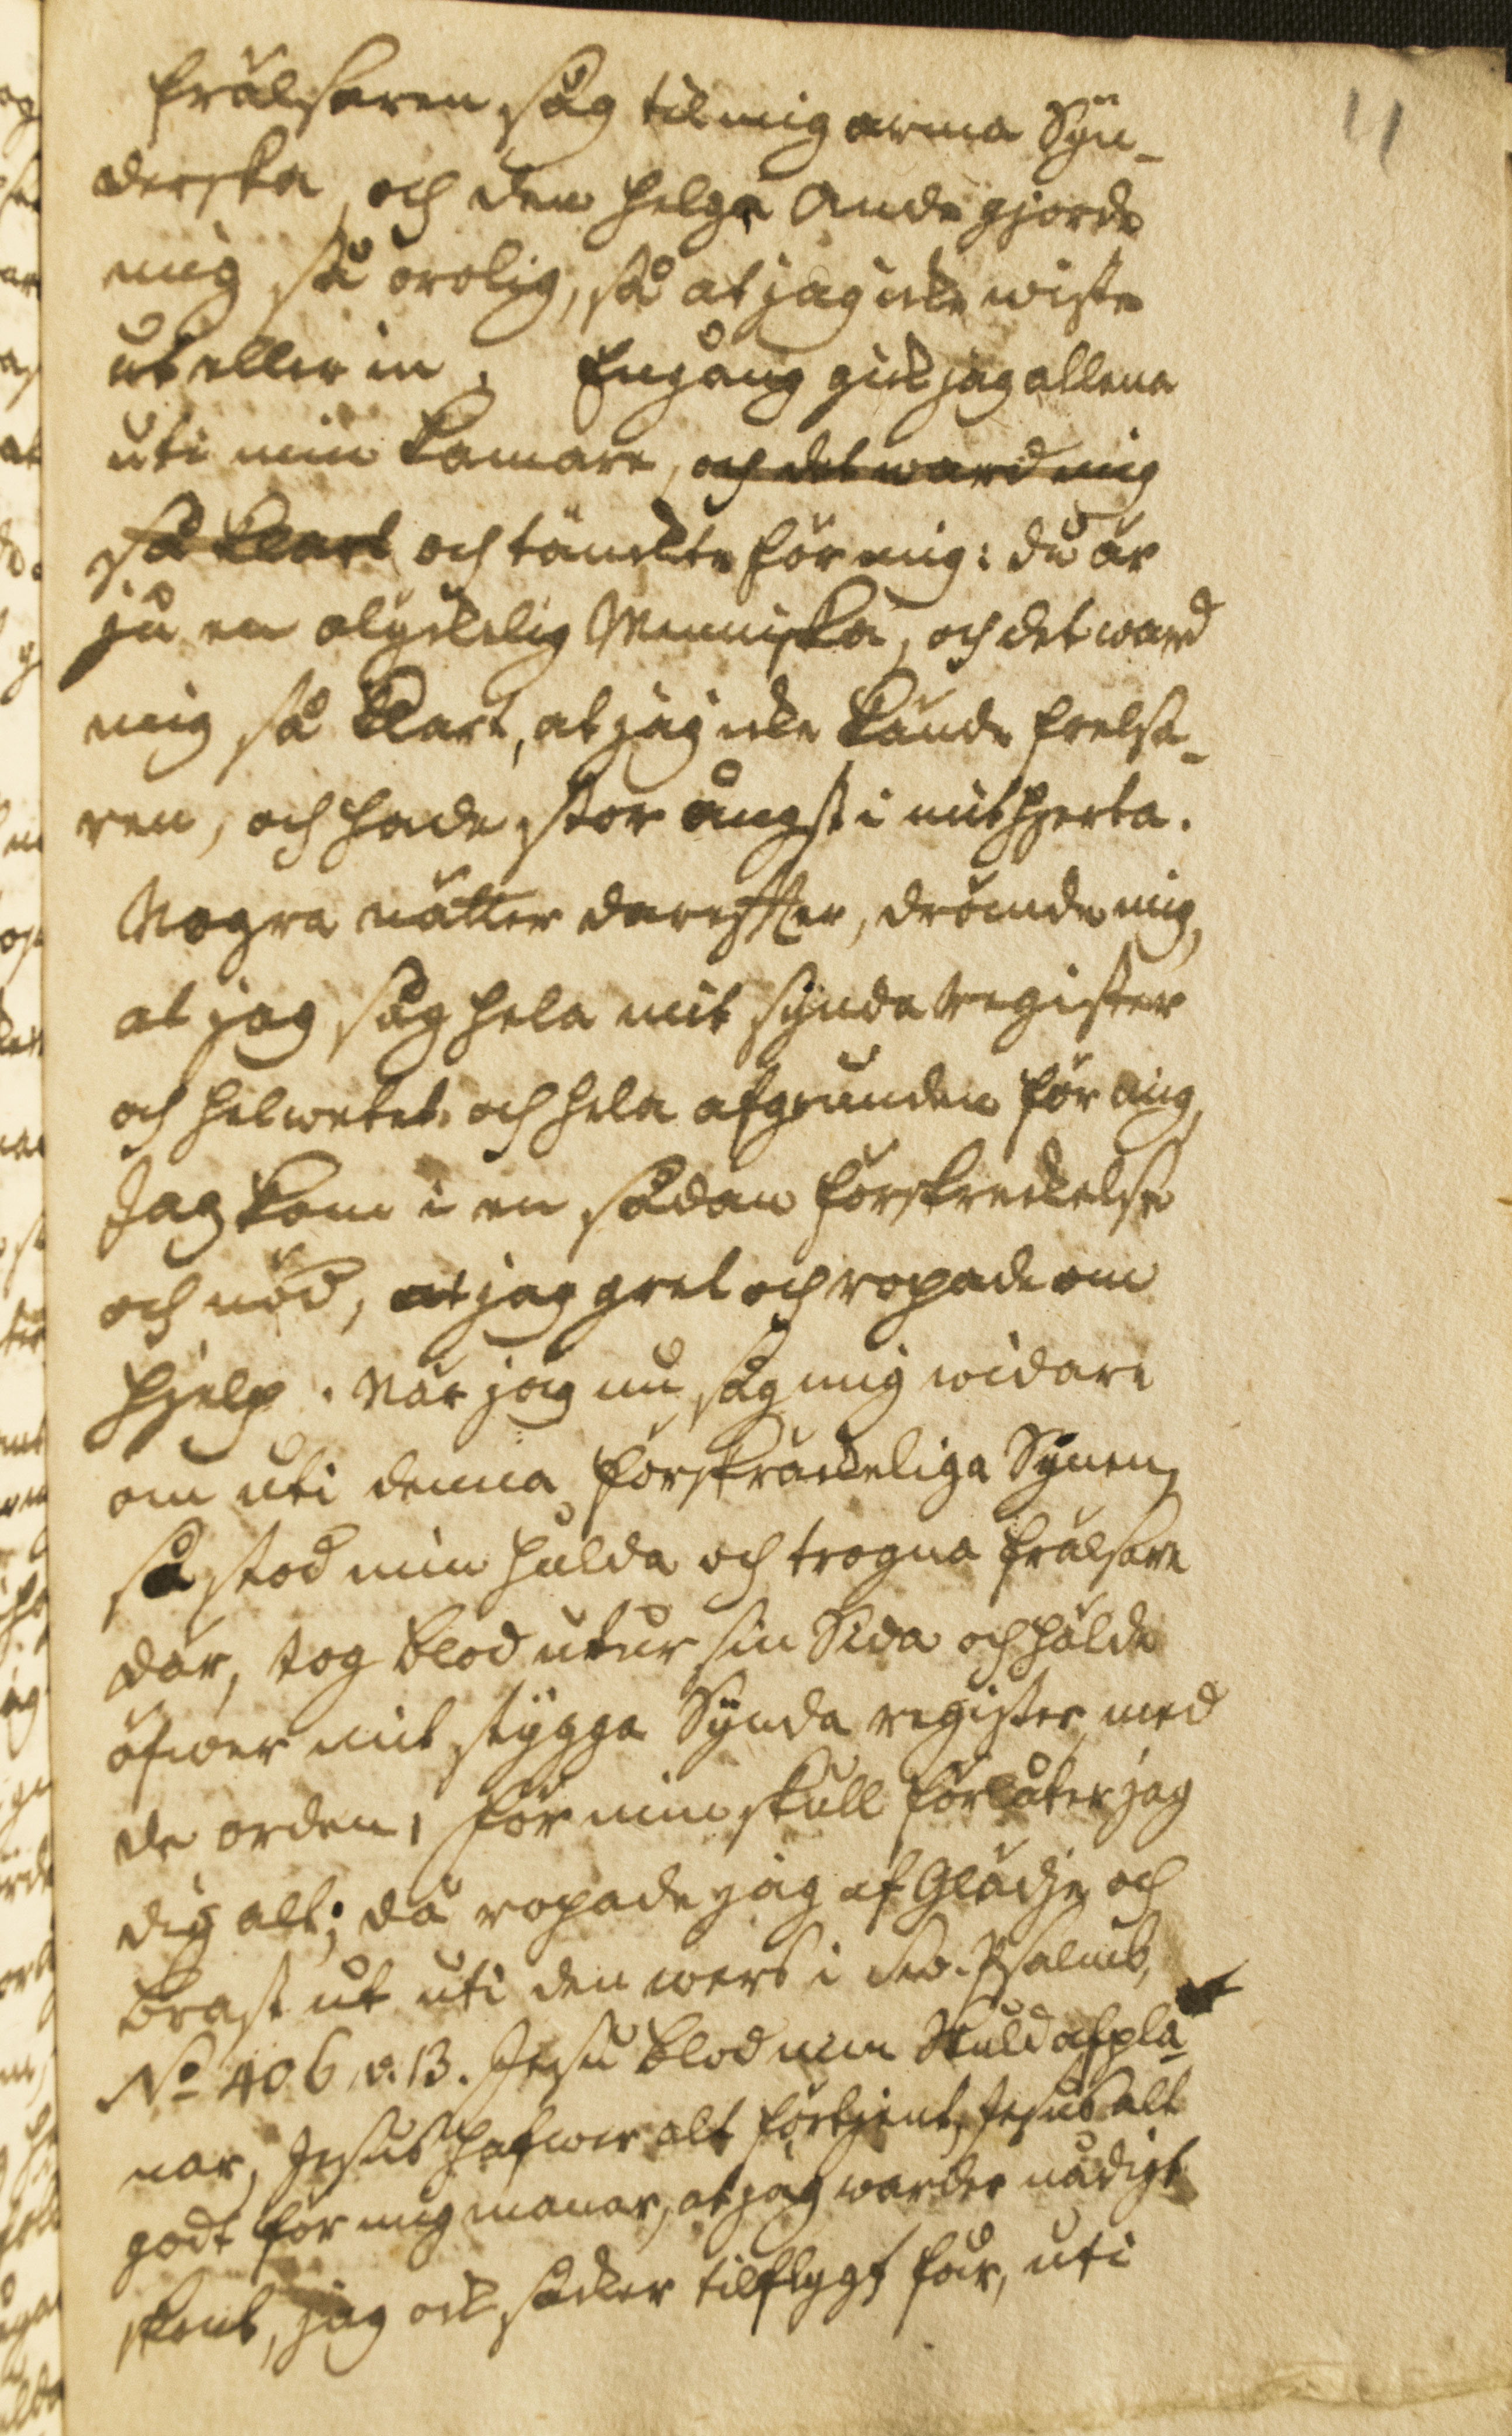 11
frälsaren såg til mig arma Syn-
derska, och den helga Ande gjorde
mig så orolig, så at jag icke wiste
ut eller in. Engång gick jag allena
uti min kamare, och det ward mig
så klart och tänckte för mig: du är
ju en olyckelig Menniska, och det ward
mig så klart, at jag icke kände frelsa-
ren, och hade stor ångst i mit hjerta.
Nogra nätter darefter, drömde mig,
at jag såg hela mit synda register
och helwetet och hela afgrunden för mig,
Jag kom i en sådan förskreckelse
och nöd, at jag gret och ropade om
hjelp. När jag nu såg mig widare
om uti denna förskräckeliga Synen,
så stod min hulda och trogna frälsare
där, tog blod utur sin Sida och hälde
öfwer mit stygga Synda register med
de orden, för min skull förlåter jag
dig alt; då ropade jag af Glädje och
brast ut uti den wers i Psalmb,
No 406. v. 13. Jesu blod min Skuld afpla-
nar, Jesus hafwer alt förtjent, Jesus alt
godt för mig manar, at jag warder nådigt
skent, jag ock säcker tilflygt får, uti